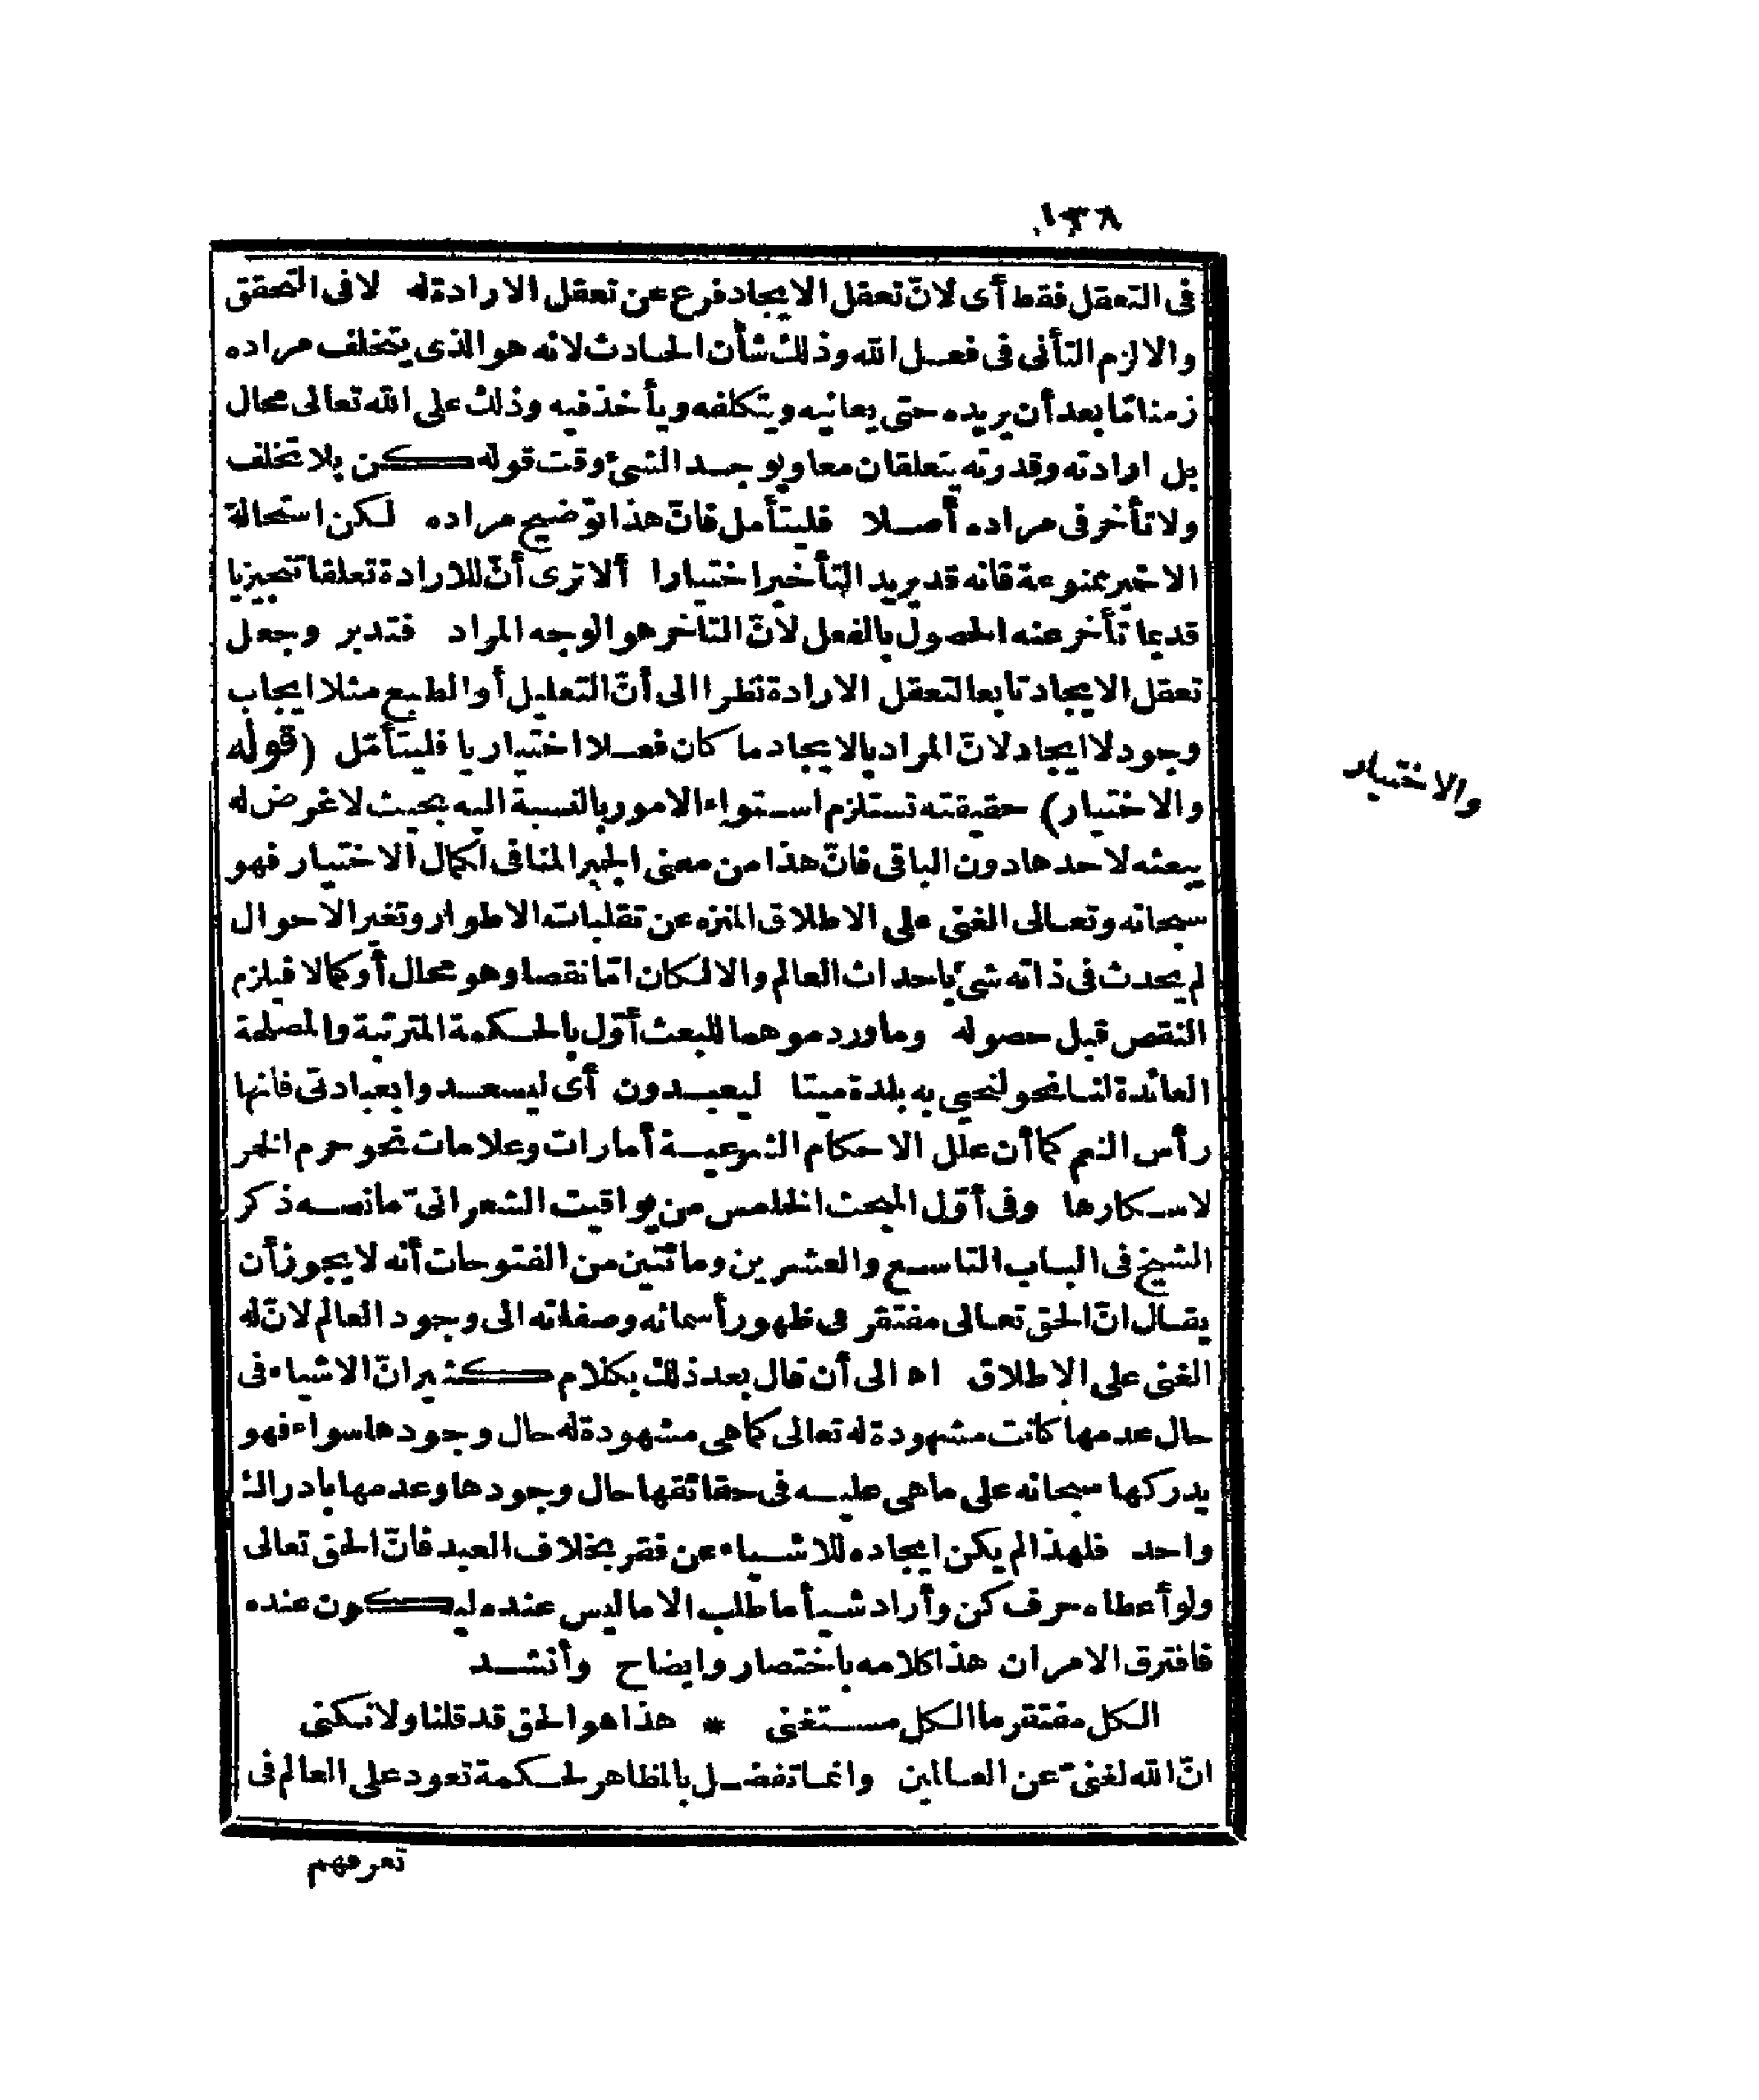 ١٣٨
فى التعقل فقط أى لانّ تعقل الايجاد فرع عن تعقل الارادة له لا فى التحقق
والا لزم التأنى فى فعل الله وذلك شأن الحادث لانه هو الذى يتخلف مراده
زمنا مّا بعد أن يريده حتى يعانيه ويتكلفه ويأخذ فيه وذلك على الله تعالى محال
بل ارادته وقدرته يتعلقان معا ويوجد الشىء وقت قوله كن بلا تخلف
ولا تأخر فى مراده أصلا فليتأمل فانّ هذا توضيح مراده لكن استحالة
الاخير ممنوعة فانه قد يريد التأخير اختيارا ألا ترى أنّ للارادة تعلقا تنجيزيا
قديما تأخر عنه الحصول بالفعل لانّ التأخر هو الوجه المراد فتدبر وجعل
تعقل الايجاد تابعا لتعقل الارادة نظرا الى أنّ التعليل أو الطبع مثلا ايجاب
وجود لا ايجاد لانّ المراد بالايجاد ما كان فعلا اختياريا فليتأمّل (قوله
والاختيار) حقيقته تستلزم استواء الامور بالنسبة اليه بحيث لا غرض له
والاختيار
يبعثه لاحدها دون الباقى فانّ هذا من معنى الجبر المنافى لكمال الاختيار فهو
سبحانه وتعالى الغنى على الاطلاق المنزه عن تقلبات الاطوار وتغير الاحوال
لم يحدث فى ذاته شئ باحداث العالم والا لكان امّا نقصا وهو محال أو كمالا فيلزم
النقص قبل حصوله وما ورد موهما للبعث أوّل بالحكمة المترتبة والمصلحة
العائدة لنا نحو لنحيى به بلدة ميتا ليعبدون أى ليسعدوا بعبادتى فانها
رأس النعم كما أن علل الاحكام الشرعية أمارات وعلامات نحو حرم الخمر
لاسكارها وفى أوّل المبحث الخامس من يواقيت الشعرانىّ ما نصه ذكر
الشيخ فى الباب التاسع والعشرين ومائتين من الفتوحات أنه لا يجوز أن
يقال انّ الحق تعالى مفتقر فى ظهور أسمائه وصفاته الى وجود العالم لانّ له
الغنى على الاطلاق اه الى أن قال بعد ذلك بكلام كثير انّ الاشياء فى
حال عدمها كانت مشهودة له تعالى كما هى مشهودة له حال وجودها سواء فهو
يدركها سبحانه على ما هى عليه فى حقائقها حال وجودها وعدمها بادراك
واحد فلهذا لم يكن ايجاده للاشياء عن فقر بخلاف العبد فانّ الحق تعالى
ولو أعطاه حرف كن وأراد شيأ ما طلب الا ما ليس عنده ليكون عنده
فافترق الامران هذا كلامه باختصار وايضاح وأنشد
الكل مفتقر ما الكل مستغنى * هذا هو الحق قد قلنا ولا نكنى
انّ الله لغنىّ عن العالمين وانما تفضل بالمظاهر لحكمة تعود على العالم فى
تعرفهم